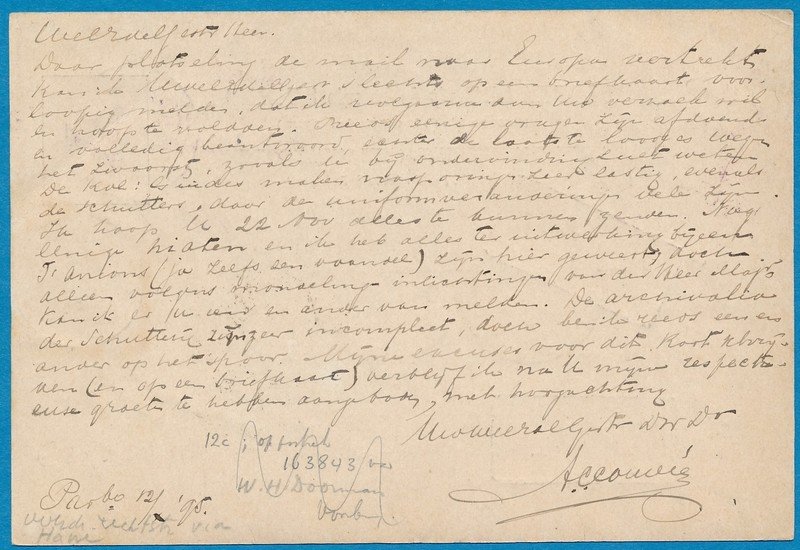 Weledelgestr Heer.
Daar plotseling de mail naar Europa vertrekt
kan ik UWeledelgestr slechts op een briefkaart voor-
loopig melden, dat ik volgaarne aan Uw verzoek wil
en hoop te voldoen. Reeds eenige vragen zijn afdoend
en volledig beantwoord, echter de laatste loodjes wegen
het zwaarst, zooals U bij ondervinding zult weten
De Kol: Guides maken nasporing zeer lastig, evenals
de Schutters, daar de uniformveranderingen vele zijn.
Ik hoop U 22 Nov alles te kunnen zenden. Nog
eenige hiaten en ik heb alles ter uitwerking bijeen
(ja zelfs een vaandel) zijn hier geweest, doch
alleen volgens mondeling inlichtingen van den Heer
kan ik er U een en ander van melden. De archivalia
der Schutterij zijn zeer incompleet, doch ben ik reeds een en
ander op het spoor. Mijne excuses voor dit kort schrij-
ven (en op een briefkaart) verblijf ik na U mijne respectu-
euse groete te hebben aangeboden, met hoogachting
UwWeledelGestr Dw Dr
12c op
163843 van
W. H. Doorman
Parbo 12/ '95.
via